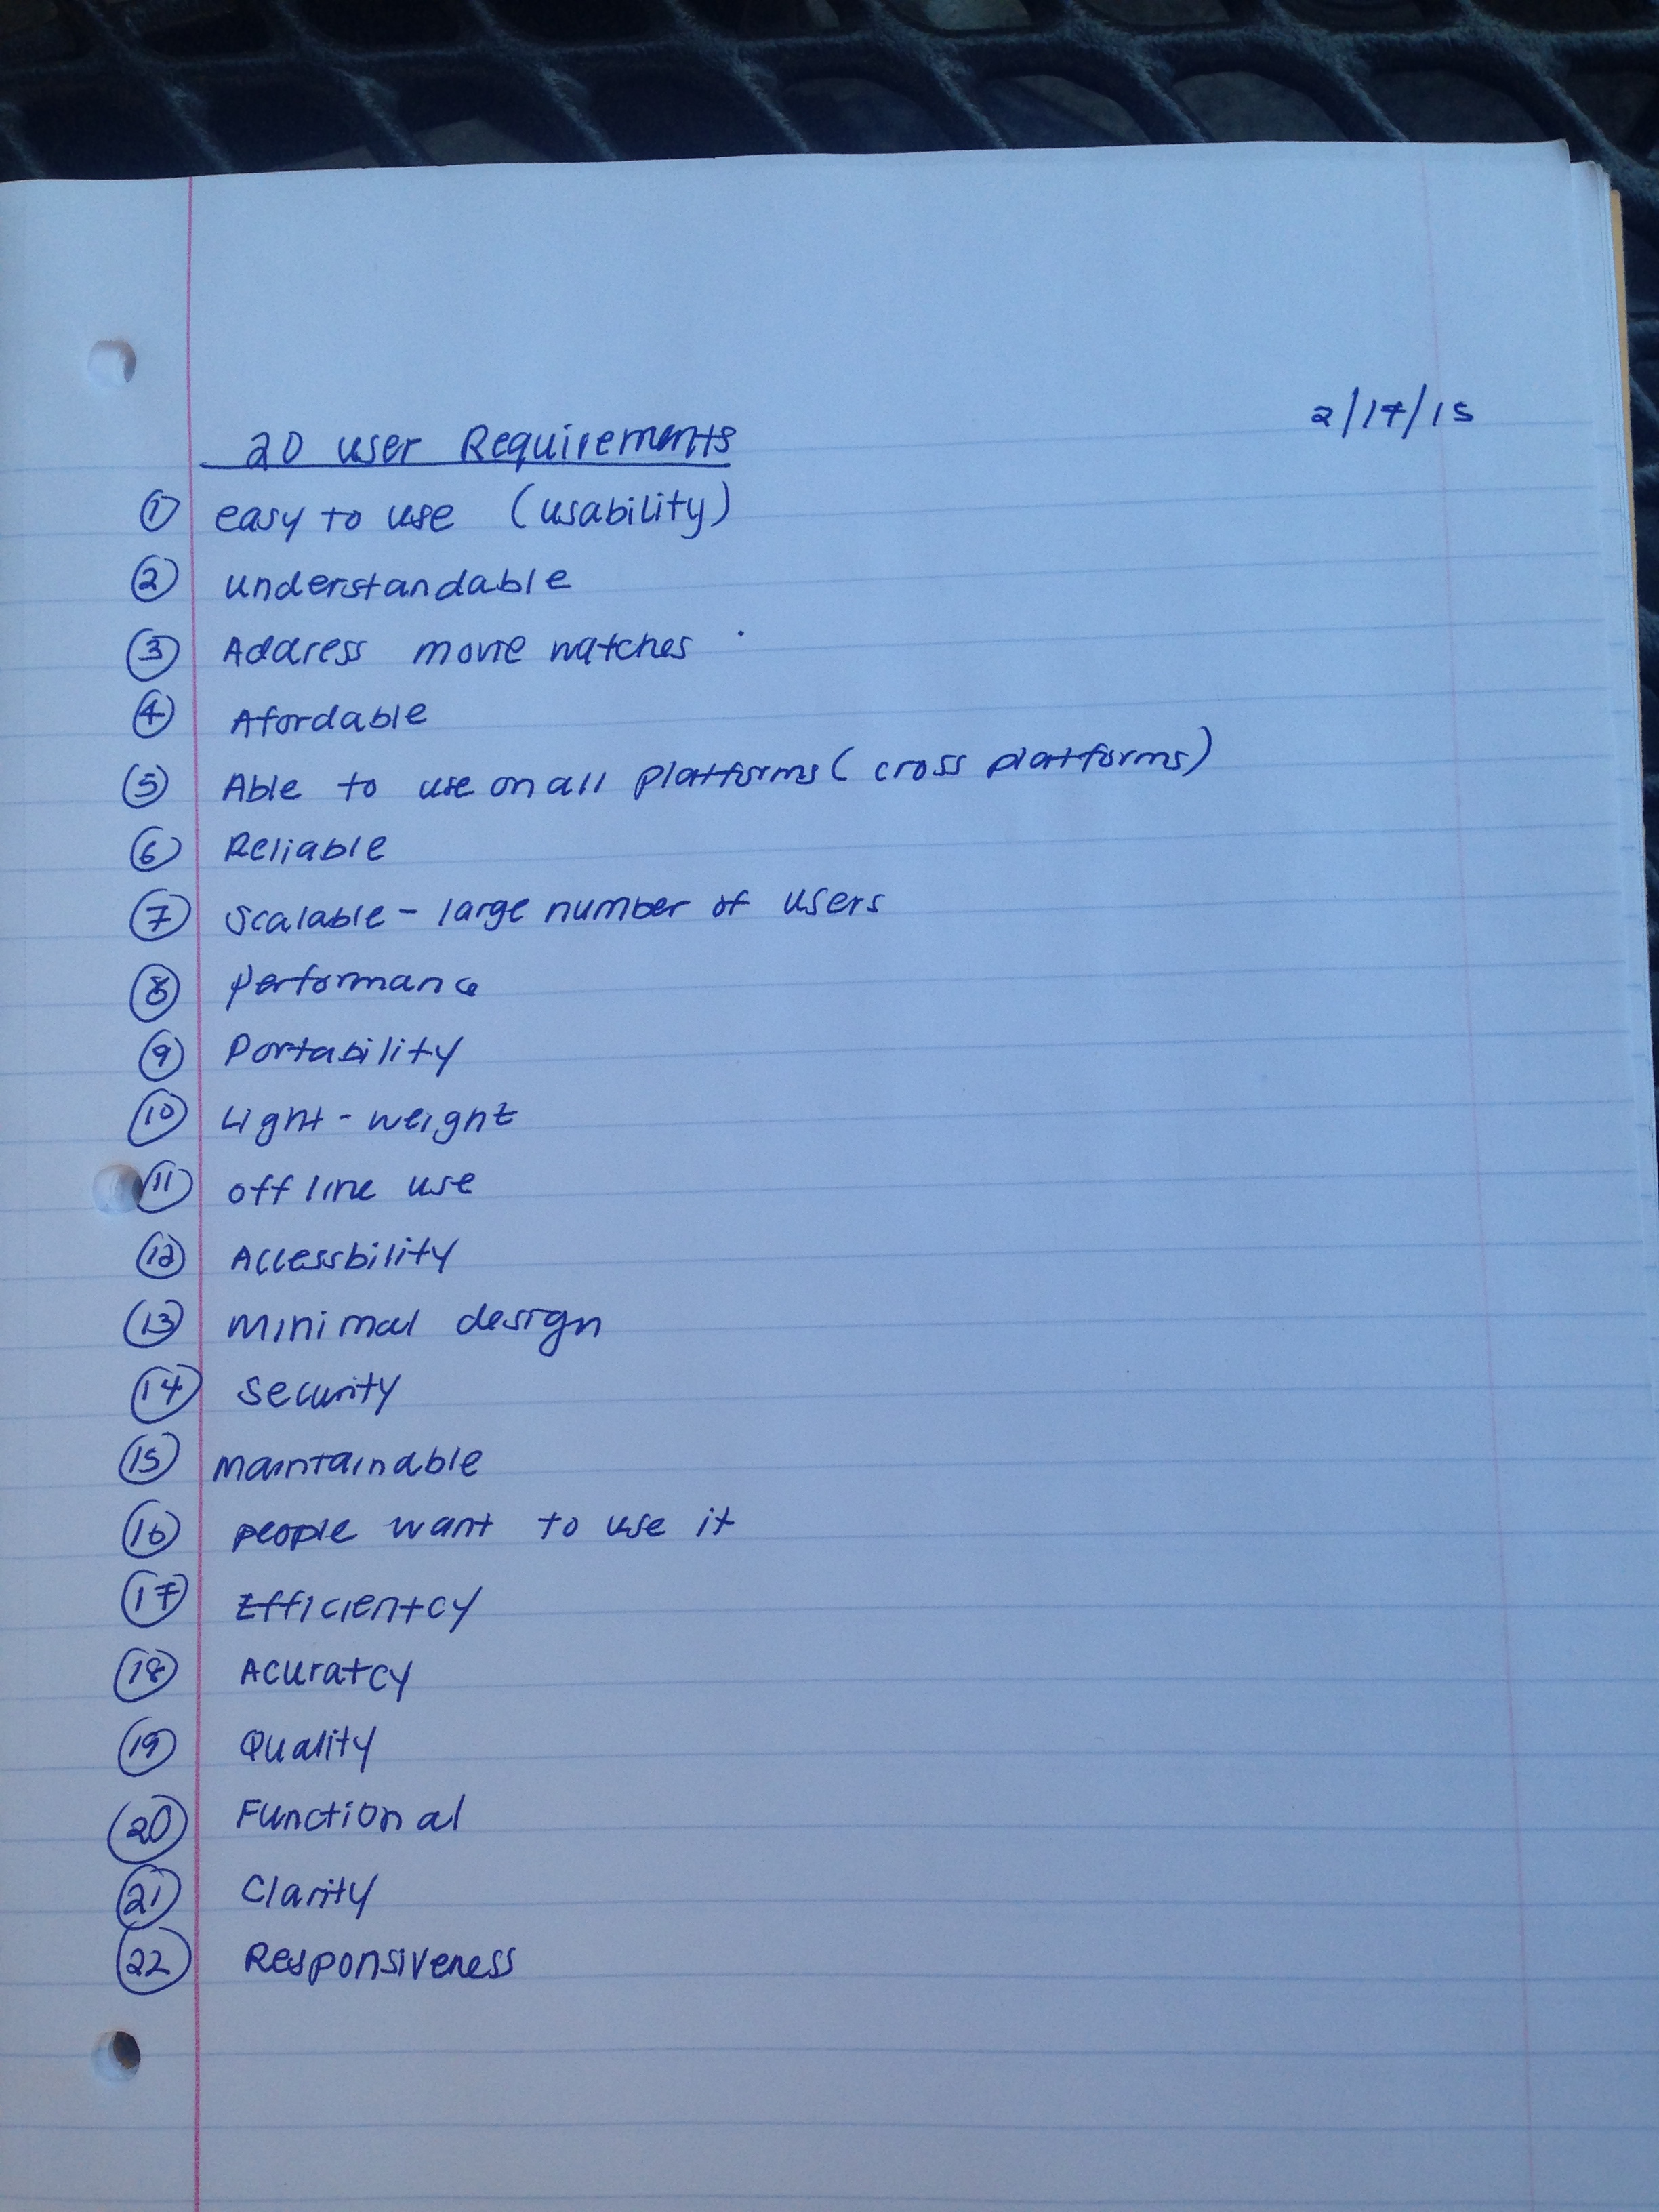 2/17/15
20 user Requirements
1 easy to use (usability)
2 understandable
3 Address movie watches
4 Afordable
5 Able to use on all platforms (cross platforms)
6 Reliable
7 Scalable - large number of users
8 performance
9 Portability
10 Light-weight
11 off line use
12 Accessbility
13 minimal design
14 Security
15 maintainable
16 people want to use it
17 Efficientcy
18 Acuratcy
19 Quality
20 Functional
21 Clarity
22 Responsiveness